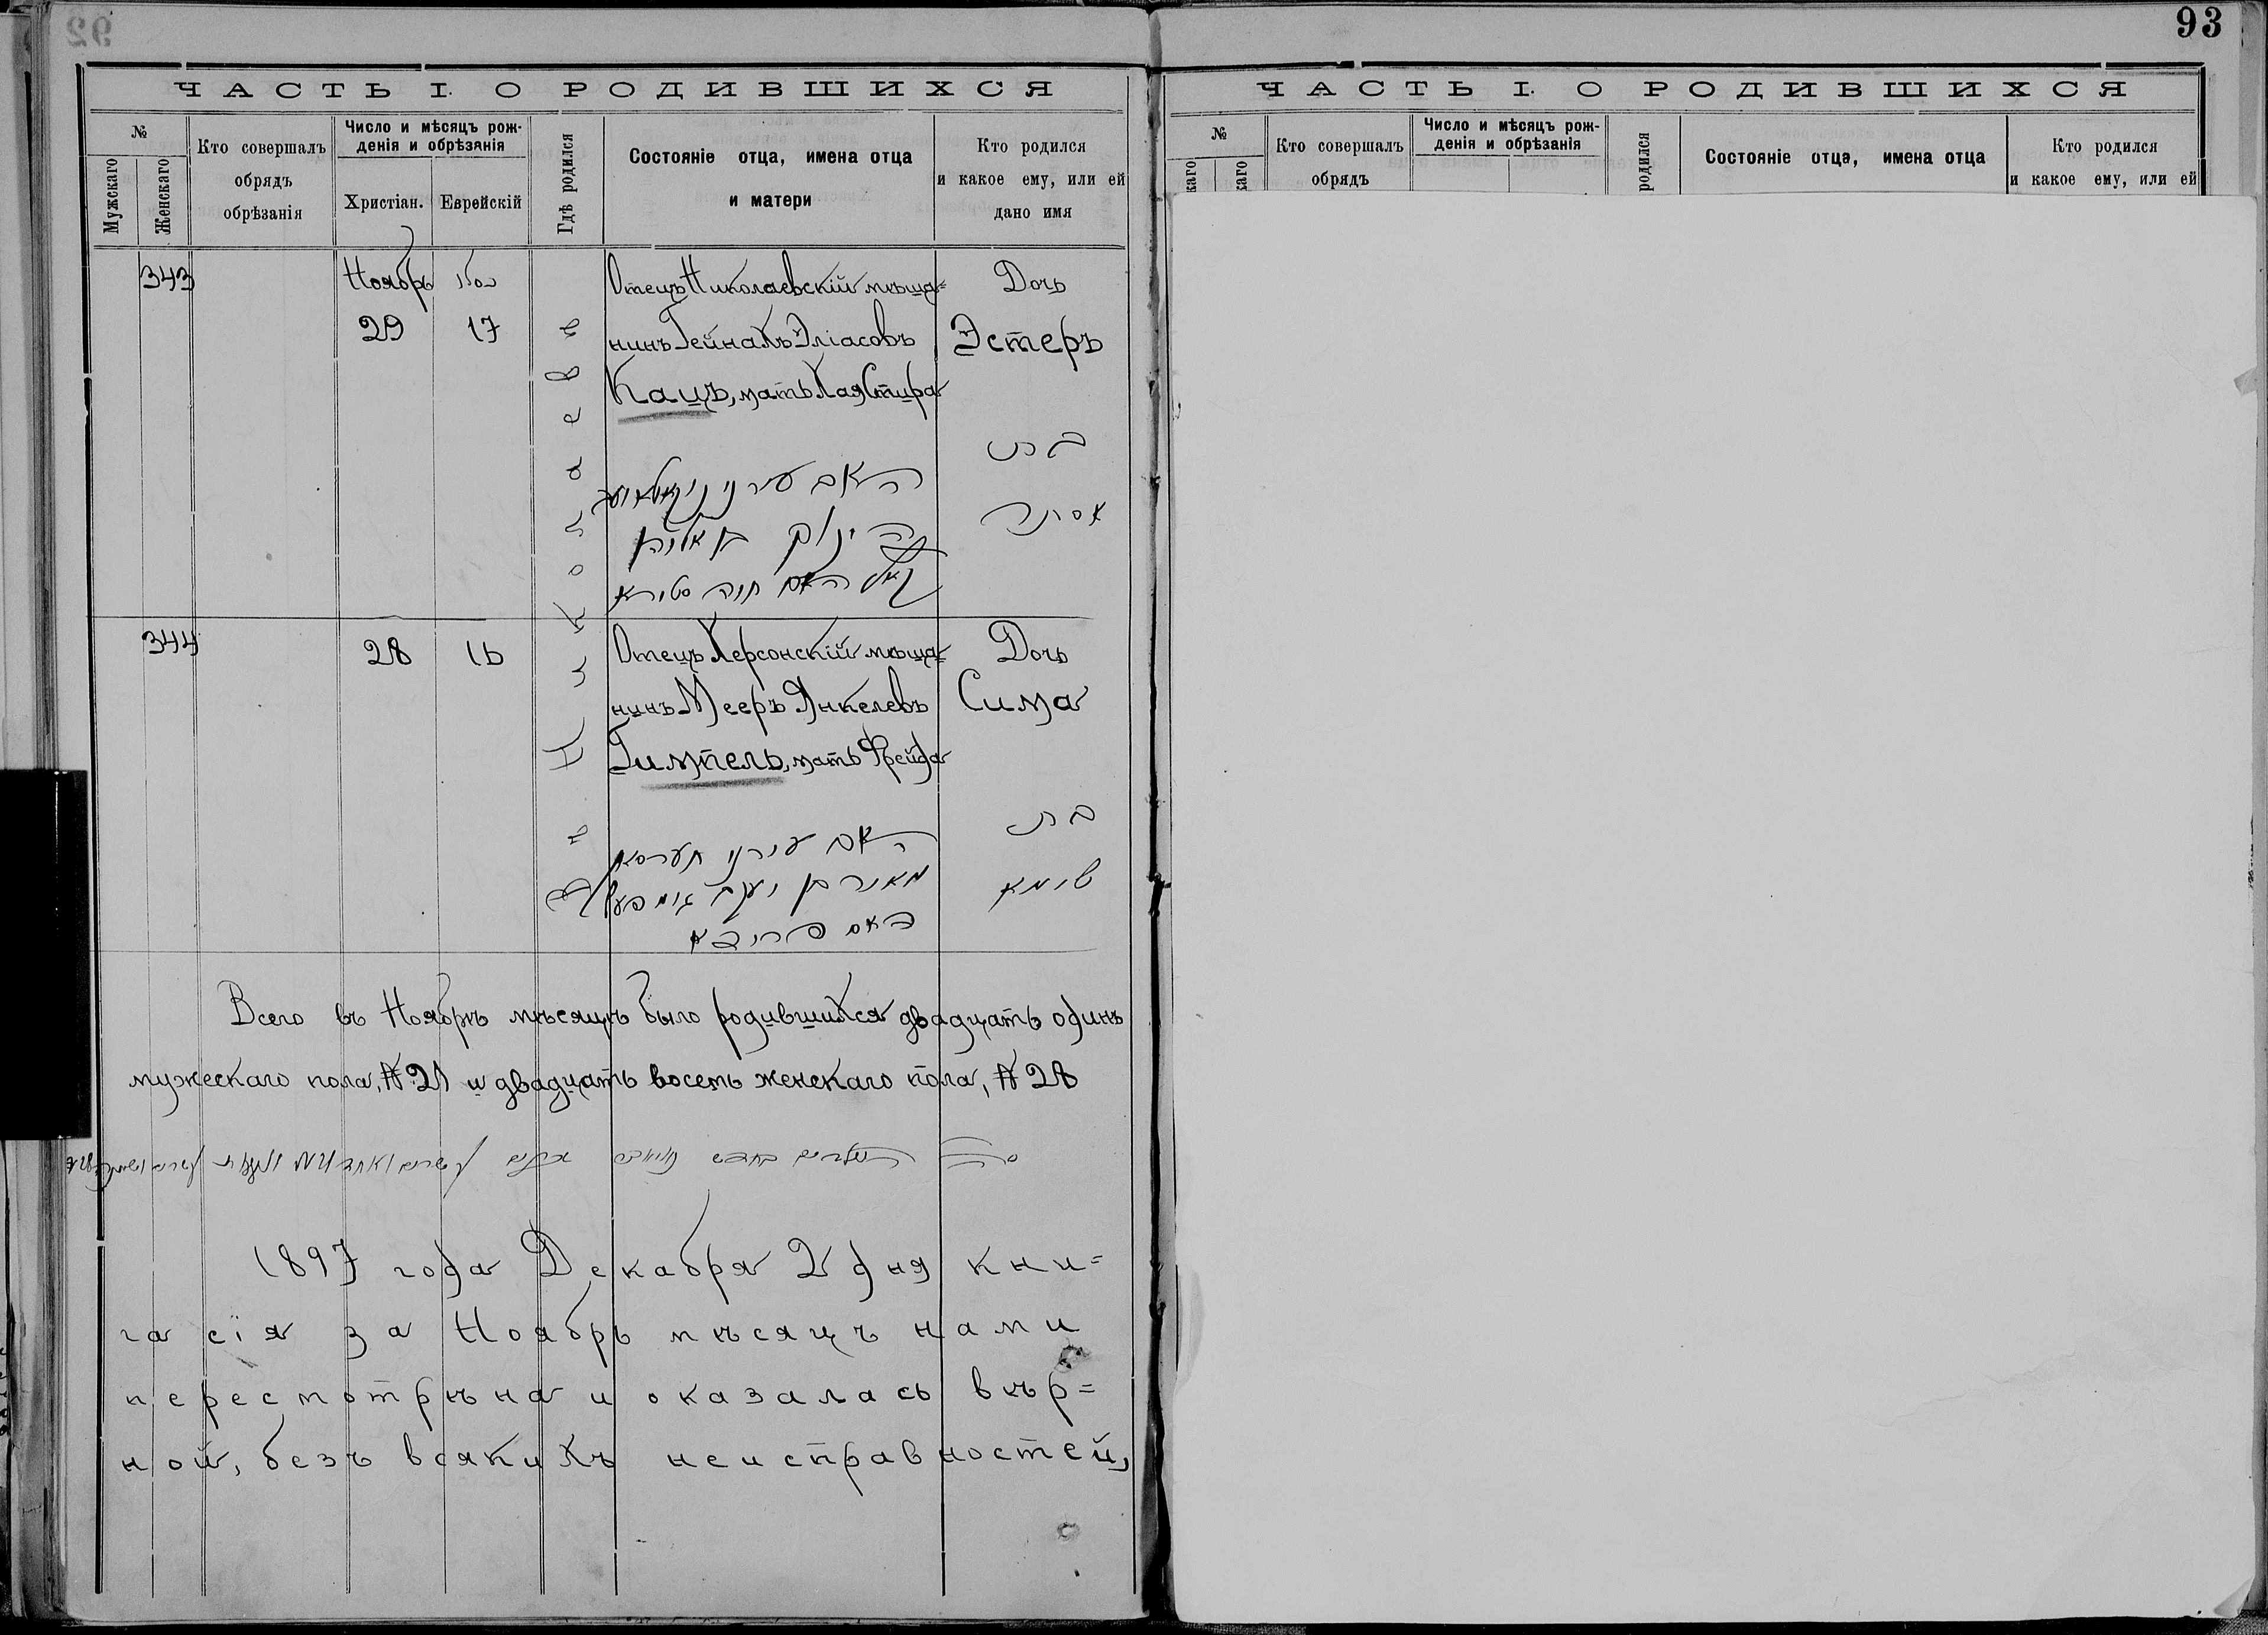 92
93
ЧАСТЬ I. О РОДИВШИХСЯ
№
Мужскаго
Женскаго
Кто совершалъ
обрядъ
обрѣзанія
Число и мѣсяцъ рож-
денія и обрѣзанія
Христіан.
Еврейскій
Гдѣ родился
Состояніе отца, имена отца
и матери
Кто родился
и какое ему, или ей
дано имя
343
Ноябрь
29
17
Въ г. Николаевѣ
Отецъ Николаевскій мѣща=
нинъ Гейнахъ Эліасовъ
Кацъ, мать Хая Стира
Дочь
Эстеръ
האב עירני
בן אליהו
האם חיה סטירא
בת
אסתר
344
28
16
Отецъ Херсонскій мѣща=
нинъ Мееръ Янкелевъ
Гимпель, мать Фрейда
Дочь
Сима
האב עירני חערסאן
מאיר בן יעקב גימפעל
האם פריידא
בת
סימא
Всего въ Ноябрѣ мѣсяцѣ было родившихся двадцать одинъ
мужескаго пола, № 21 и двадцать восемь женскаго пола, № 28
1897 года Декабря 2 дня кни=
га сія за Ноябрь мѣсяцъ нами
пересмотрѣна и оказалась вѣр=
ной, безъ всякихъ неисправностей,
ЧАСТЬ I. О РОДИВШИХСЯ
№
каго
каго
Кто совершалъ
обрядъ
Число и мѣсяцъ рож-
денія и обрѣзанія
родился
Состояніе отца, имена отца
Кто родился
и какое ему, или ей